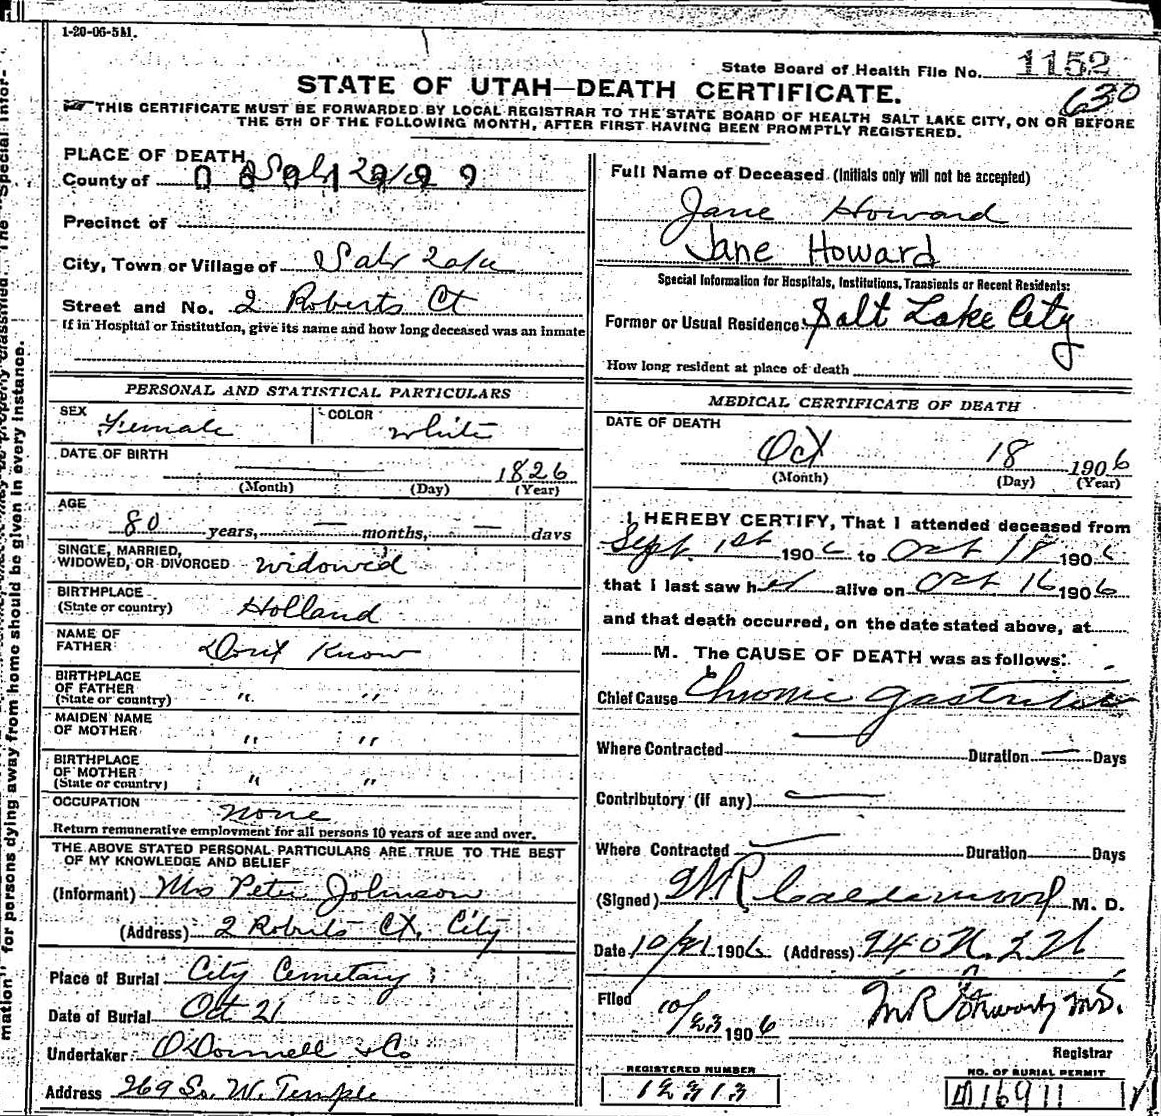 1-20-06-5M.
State Board of Health File No. 1152
630
STATE OF UTAH—DEATH CERTIFICATE.
THIS CERTIFICATE MUST BE FORWARDED BY LOCAL REGISTRAR TO THE STATE BOARD OF HEALTH SALT LAKE CITY, ON OR BEFORE
THE 5TH OF THE FOLLOWING MONTH, AFTER FIRST HAVING BEEN PROMPTLY REGISTERED.
PLACE OF DEATH
County of Salt Lake
Precinct of
City, Town or Village of Salt Lake
Street and No. 2 Roberts Ct
If in Hospital or Institution, give its name and how long deceased was an inmate
PERSONAL AND STATISTICAL PARTICULARS
SEX Female COLOR White
DATE OF BIRTH 1826
(Month) (Day) (Year)
AGE
80 years, — months, — days
SINGLE, MARRIED,
WIDOWED, OR DIVORCED widowed
BIRTHPLACE
(State or country) Holland
NAME OF
FATHER Dont Know
BIRTHPLACE
OF FATHER
(State or country) " "
MAIDEN NAME
OF MOTHER " "
BIRTHPLACE
OF MOTHER
(State or country) " "
OCCUPATION none
Return remunerative employment for all persons 10 years of age and over.
THE ABOVE STATED PERSONAL PARTICULARS ARE TRUE TO THE BEST
OF MY KNOWLEDGE AND BELIEF
(Informant) Mrs Peter Johnson
(Address) 2 Roberts Ct, City
Place of Burial City Cemetary
Date of Burial Oct 21
Undertaker O'Donnell & Co
Address 269 So. W. Temple
Full Name of Deceased (Initials only will not be accepted)
Jane Howard
Jane Howard
Special Information for Hospitals, Institutions, Transients or Recent Residents:
Former or Usual Residence Salt Lake City
How long resident at place of death
MEDICAL CERTIFICATE OF DEATH
DATE OF DEATH
Oct 18 1906
(Month) (Day) (Year)
I HEREBY CERTIFY, That I attended deceased from
Sept 1st 1906 to Oct 18 1906
that I last saw her alive on Oct 16 1906
and that death occurred, on the date stated above, at
M. The CAUSE OF DEATH was as follows:
Chief Cause Chronic gastritis
Where Contracted — Duration — Days
Contributory (if any) —
Where Contracted — Duration Days
(Signed) Calderwood M. D.
Date 1906 (Address)
Filed 10/23 1906
Registrar
REGISTERED NUMBER
12313
NO. OF BURIAL PERMIT
16911
for persons dying away from home should be given in every instance.